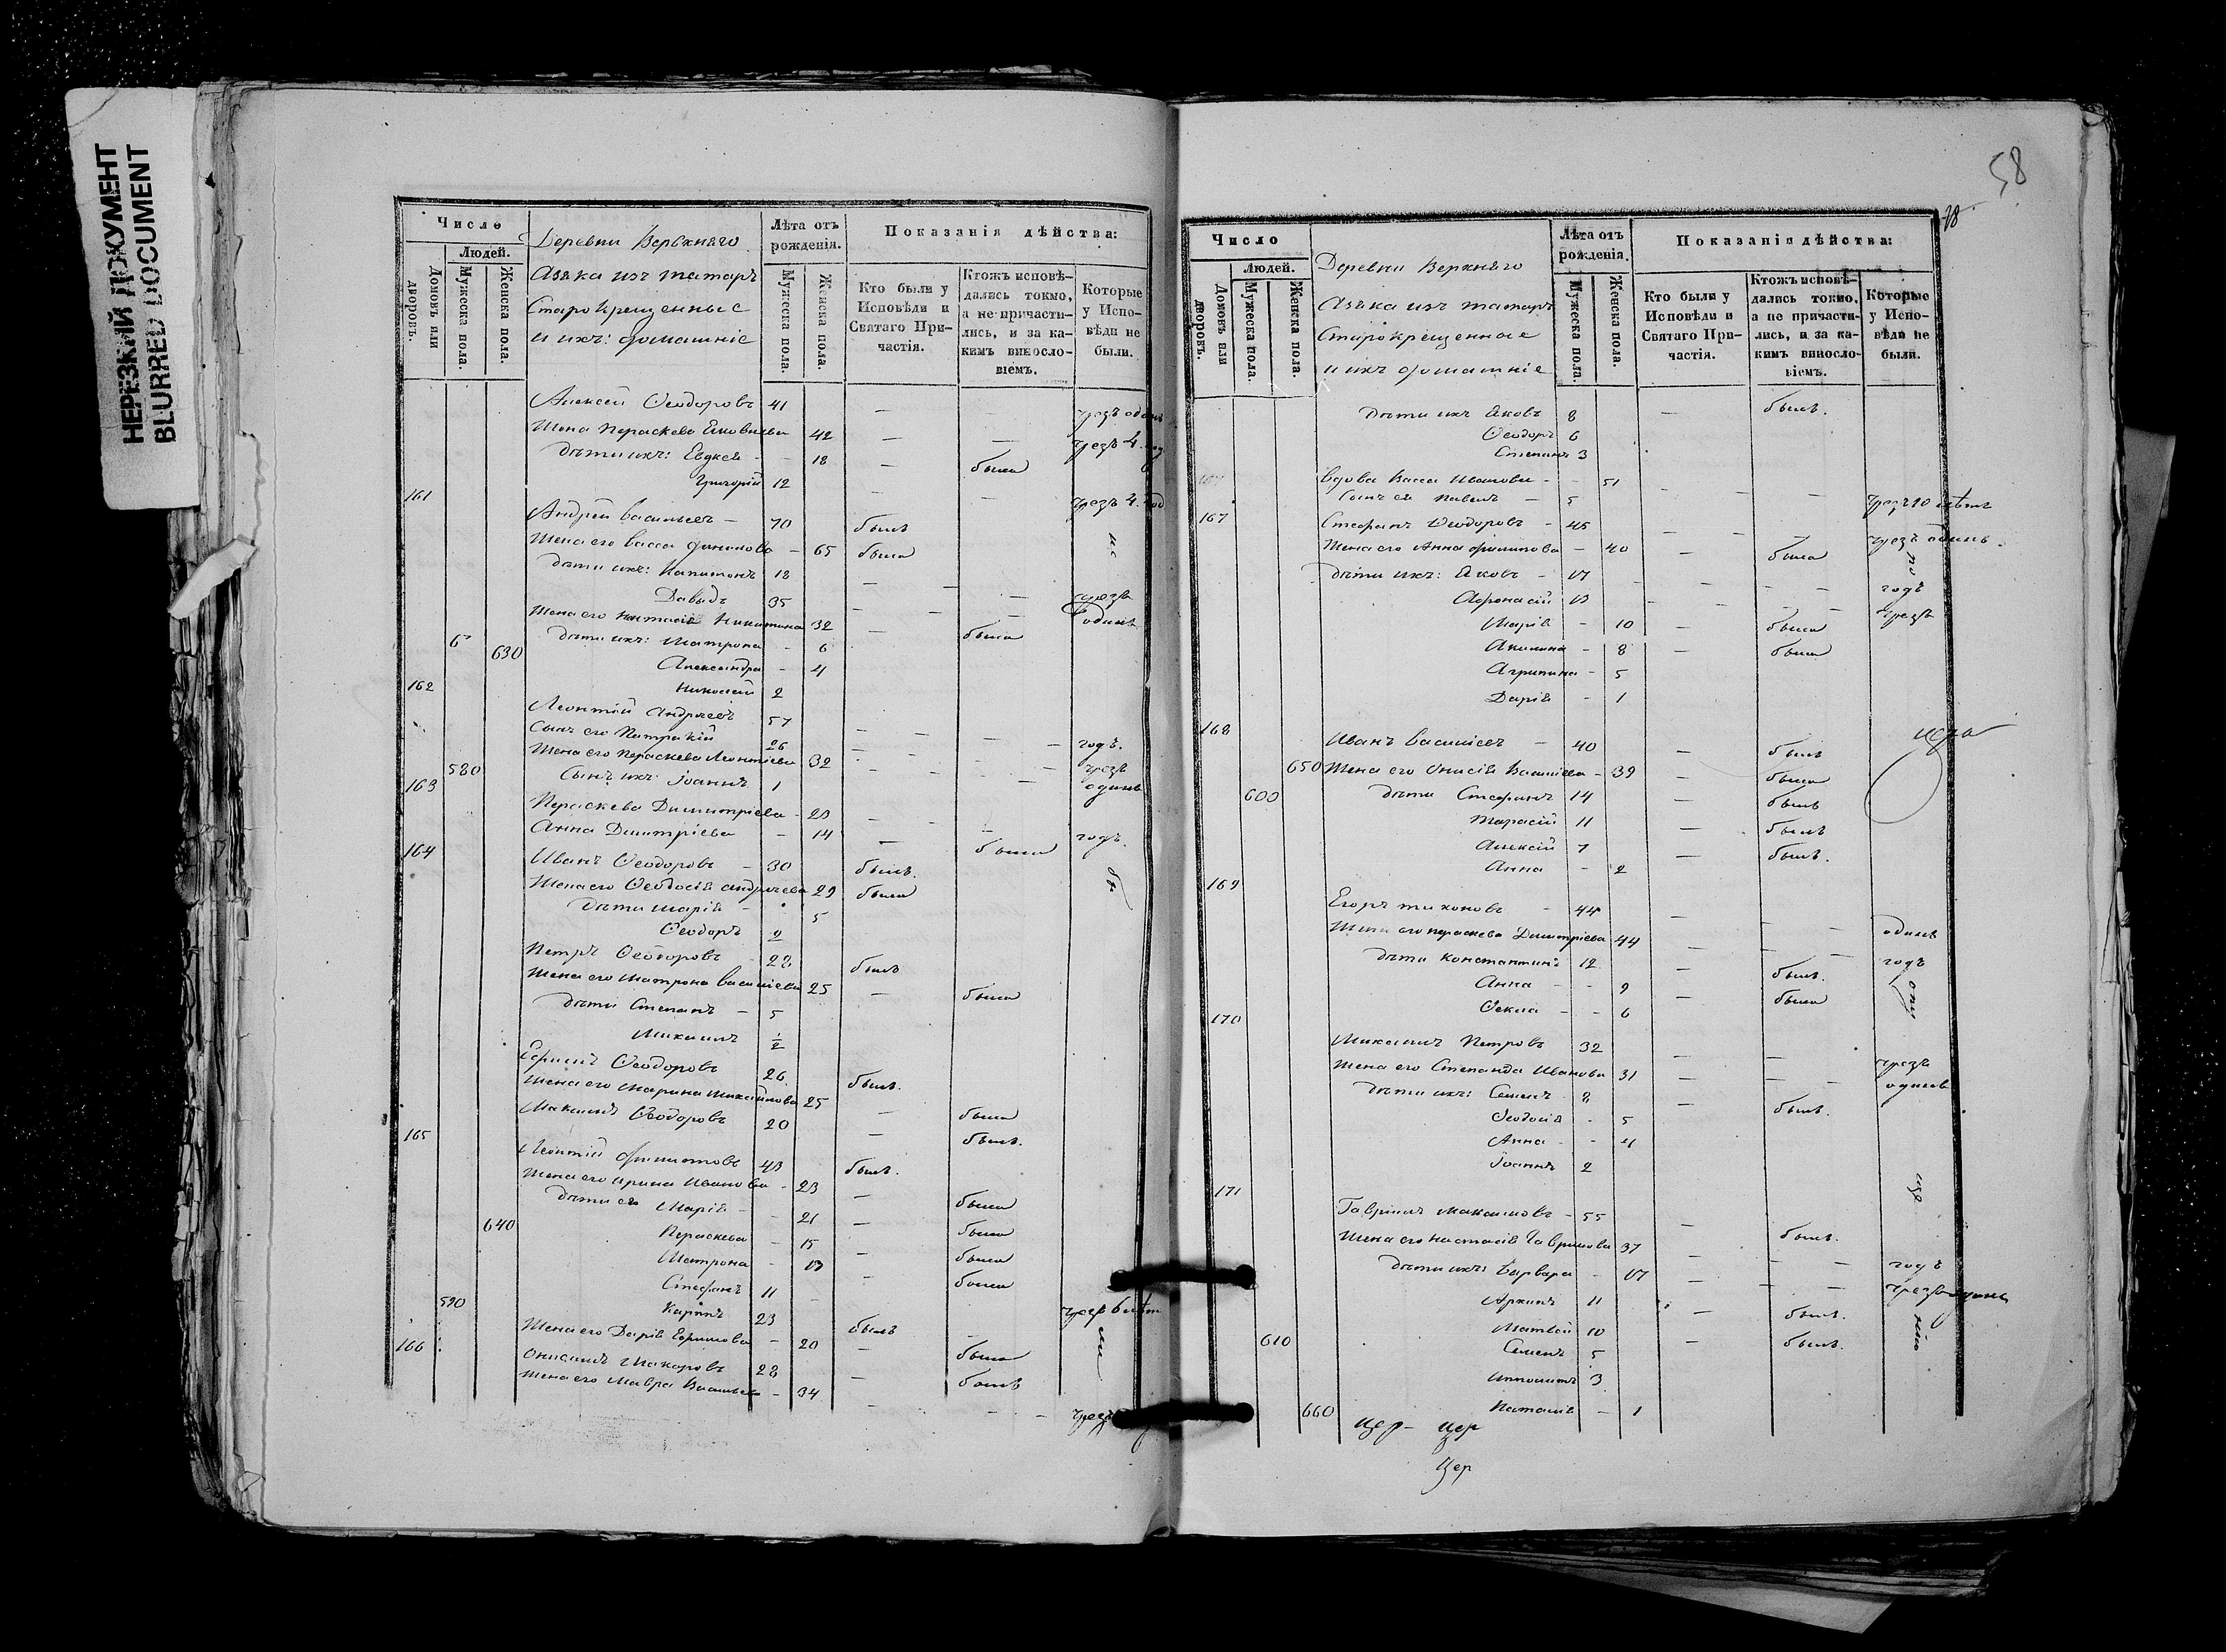 НЕРЕЗКИЙ ДОКУМЕНТ
BLURRED DOCUMENT
Число
Людей.
Домовъ или дворовъ.
Мужеска пола.
Женска пола.
Деревни Верхняго
Азяка изъ татаръ
Старокрещенные
и ихъ: домашніе
Лѣта отъ рожденія.
Мужеска пола.
Женска пола.
Показанія дѣйства:
Кто были у Исповѣди и Святаго Причастія.
Ктожъ исповѣдались токмо, а не причастились, и за какимъ винословіемъ.
Которые у Исповѣди не были.
Алексей Ѳеодоровъ 41 — — чрезъ одинъ
Жена Параскева Яковлева 42 — — чрезъ 4. год
Дѣти ихъ: Евдкея 18 — была
Григорій 12 — — чрезъ 4. год
161
Андрей Васильевъ — 70 былъ
Жена его Васса Филипова — 65 была
Дѣти ихъ: Капитонъ 18 — —
Давыдъ 35 — — чрезъ
Жена его Настасія Никитина 32 — была одинъ
630 Дѣти ихъ: Матрона — 6
Александра — 4
162 Николай 2
Леонтій Андреевъ 57 — —
Сынъ его Патракій 26 — — годъ.
Жена его Параскева Леонтіева 32 — — чрезъ
580 Сынъ ихъ: Іоаннъ 1 одинъ
163
Параскева Димитріева - 23 — —
Анна Димитріева — 14 — была годъ.
164
Иванъ Ѳеодоровъ — 30 былъ.
Жена его Ѳеодосія Андреева 29 была
Дѣти Марія — 5
Ѳеодоръ 2
Петръ Ѳеодоровъ 28 былъ
Жена его Матрона Васильева 25 — была
Дѣти Степанъ — 5
Михаилъ ½
Ефимъ Ѳеодоровъ 26 былъ.
Жена его Марина Михайлова 25 — была
Максимъ Ѳеодоровъ 20 — былъ.
165
Леонтій Филиповъ 43 былъ.
Жена его Ирина Иванова - 23 — была
Дѣти ея Марія — 21 — была
640 Параскева — 15 — была
Матрона — 13 — была
Стефанъ 11 —
590 Карпъ 23 былъ — чрезъ 6 лѣт
Жена его Дарія Ефимова — 20 — была
166
Онисимъ Макаровъ 28 — былъ
Жена его Мавра Васильева — 34 — — чрезъ
58
Число
Людей.
Домовъ или дворовъ.
Мужеска пола.
Женска пола.
Деревни Верхняго
Азяка изъ татаръ
Старокрещенные
и ихъ домашніе
Лѣта отъ рожденія.
Мужеска пола.
Женска пола.
Показанія дѣйства:
Кто были у Исповѣди и Святаго Причастія.
Ктожъ исповѣдались токмо, а не причастились, и за какимъ винословіемъ.
Которые у Исповѣди не были.
Дѣти ихъ Яковъ 8 — былъ.
Ѳеодоръ 6
Степанъ 3
Вдова Васса Иванова - 51 — — чрезъ 10 лѣтъ
Сынъ ея Павелъ — 5
167 Стефанъ Ѳеодоровъ - 45 — — чрезъ одинъ
Жена его Анна Филипова — 40 — была
Дѣти ихъ: Яковъ — 17 — — годъ
Афонасій 13 — — чрезъ
Марія — 10 — была
Акилина — 8 — была
Агрипина — 5
Дарія — 1
168
Иванъ Васильевъ — 40 — былъ
650 Жена его Онисія Васильева — 39 — была
600 Дѣти Стефанъ 14 — былъ
Тарасій 11 — былъ
Алексій 7 — былъ.
Анна — 2
169
Егоръ Тихоновъ — 44 — —
Жена его Параскева Димитріева 44 — — одинъ
Дѣти Константинъ 12 — былъ. годъ
Анна — 9 — была
Ѳекла — 6
170
Михаилъ Петровъ 32 — — чрезъ
Жена его Степанида Иванова 31 — — одинъ
Дѣти ихъ: Семенъ 8 — былъ.
Ѳеодосія - 5
Анна - 4
Іоаннъ 2
171
Гаврилъ Максимовъ — 55 — былъ.
Жена его Настасія Гаврилова 37 — — годъ
Дѣти ихъ: Варвара - 17 — — чрезъ одинъ
Архипъ 11 — былъ.
Матвей 10 — былъ.
610 Семенъ 5
Ипполитъ 3
660 Наталія — 1